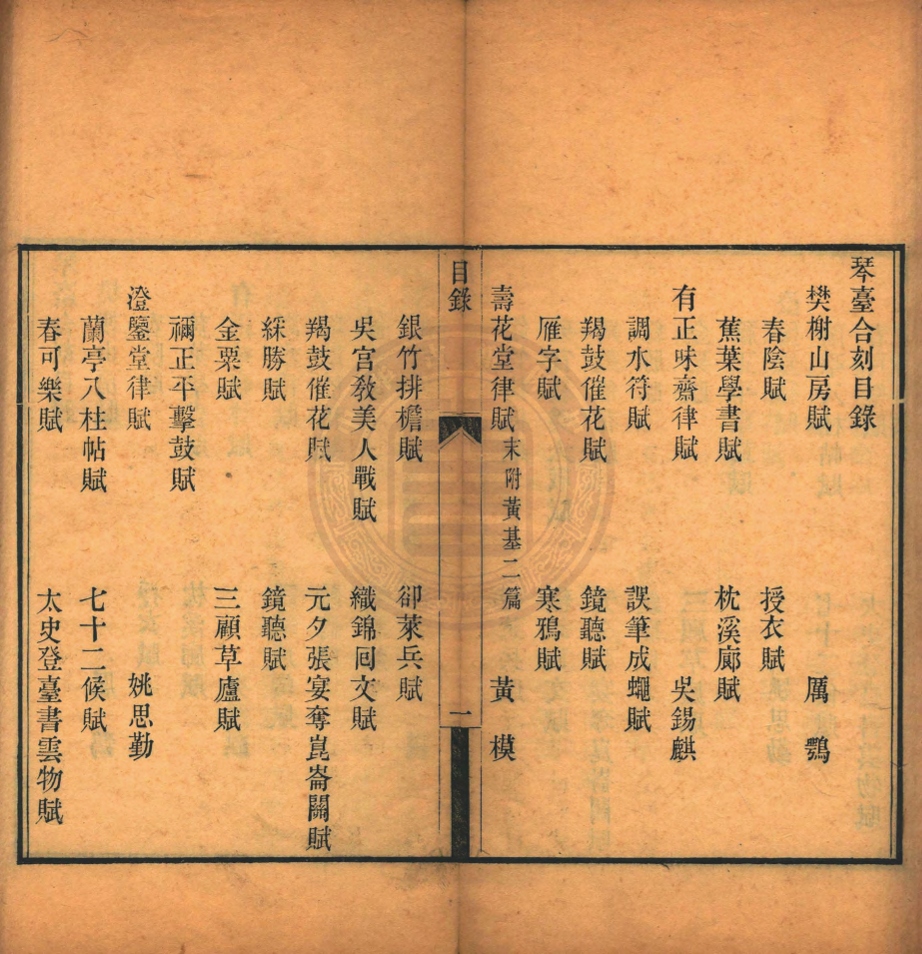 琴臺合刻目錄
樊榭山房賦 厲鶚
春陰賦 授衣賦
蕉葉學書賦 枕溪廊賦
有正味齋律賦 吳錫麒
調水符賦 誤筆成蠅賦
羯鼓催花賦 鏡聽賦
雁字賦 寒鴉賦
壽花堂律賦 末附黃基二篇 黃模
目錄 一
銀竹排檐賦 卻萊兵賦
吳宮教美人戰賦 織錦回文賦
羯鼓催花賦 元夕張宴奪崑崙關賦
綵勝賦 鏡聽賦
金粟賦 三顧草廬賦
禰正平擊鼓賦
澄鑒堂律賦 姚思勤
蘭亭八柱帖賦 七十二候賦
春可樂賦 太史登臺書雲物賦